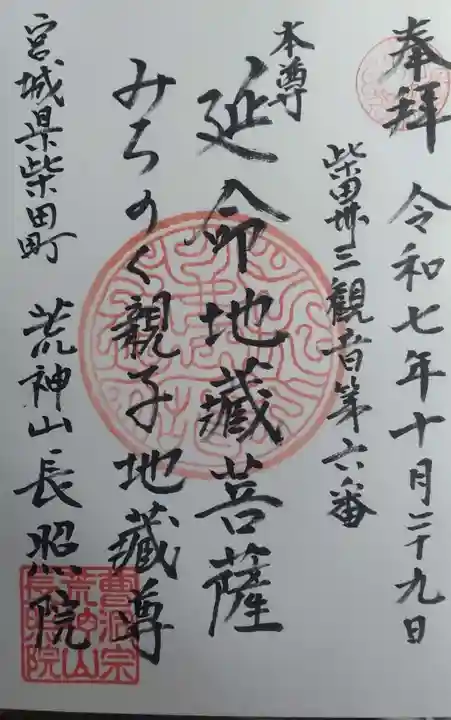 奉拜 令和七年十月二十九日
柴田卅三観音第六番
本尊
延命地蔵菩薩
みちのく親子地蔵尊
宮城県柴田町 荒神山長照院
曹洞宗
荒神山
長照院